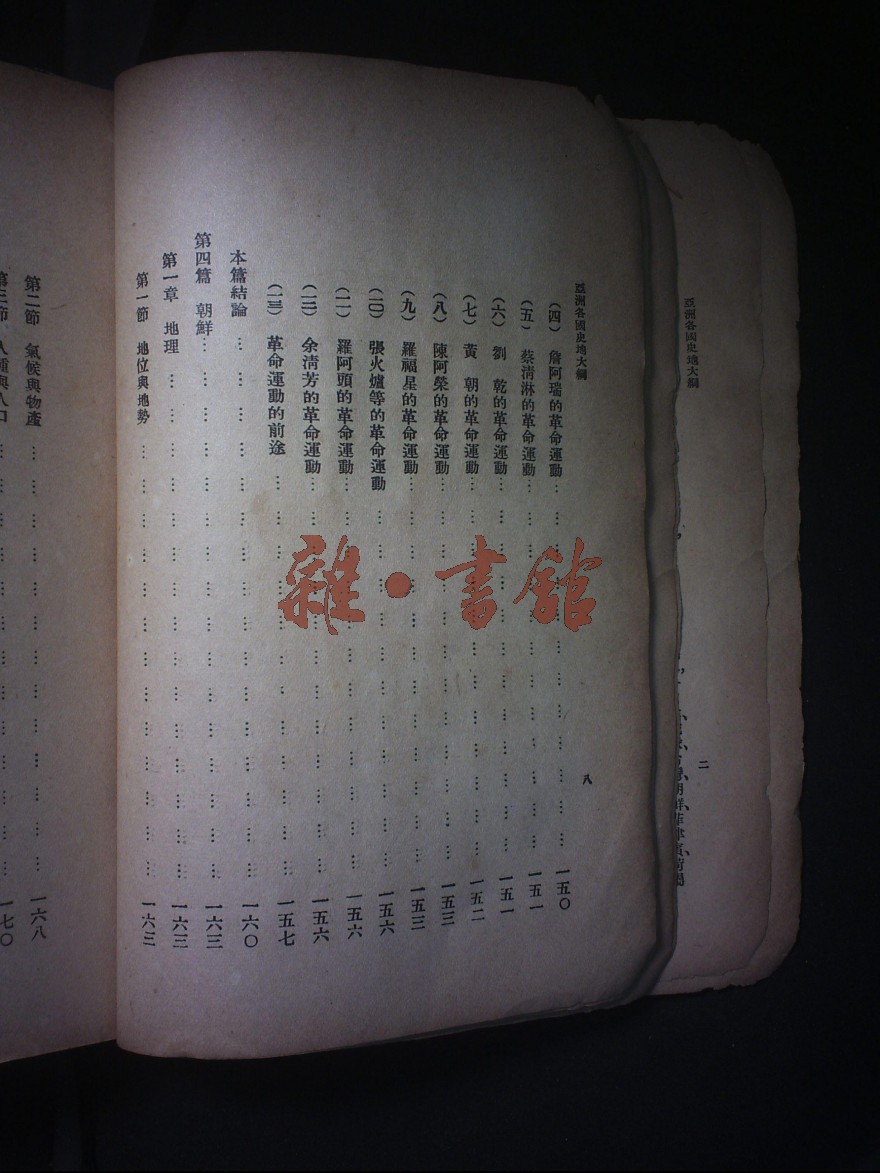 亞洲各國史地大綱
二
亞洲各國史地大綱
八
（四） 詹阿瑞的革命運動… … … … … … … … … … … 一五〇
（五） 蔡清淋的革命運動… … … … … … … … … … … 一五一
（六） 劉 乾的革命運動… … … … … … … … … … … 一五一
（七） 黃 朝的革命運動… … … … … … … … … … … 一五二
（八） 陳阿榮的革命運動… … … … … … … … … … … 一五三
（九） 羅福星的革命運動… … … … … … … … … … … 一五三
（一〇） 張火爐等的革命運動 … … … … … … … … … … … 一五六
（一一） 羅阿頭的革命運動… … … … … … … … … … … 一五六
（一二） 余清芳的革命運動… … … … … … … … … … … 一五六
（一三） 革命運動的前途 … … … … … … … … … … … 一五七
本篇結論 … … … … … … … … … … … … … … 一六〇
第四篇 朝鮮… … … … … … … … … … … … … … 一六三
第一章 地理 … … … … … … … … … … … … … … 一六三
第一節 地位與地勢 … … … … … … … … … … … … 一六三
第二節 氣候與物產 … … … … … … … … … … … … 一六八
第三節 人種與人口 … … … … … … … … … … … … 一七〇
雜·書館